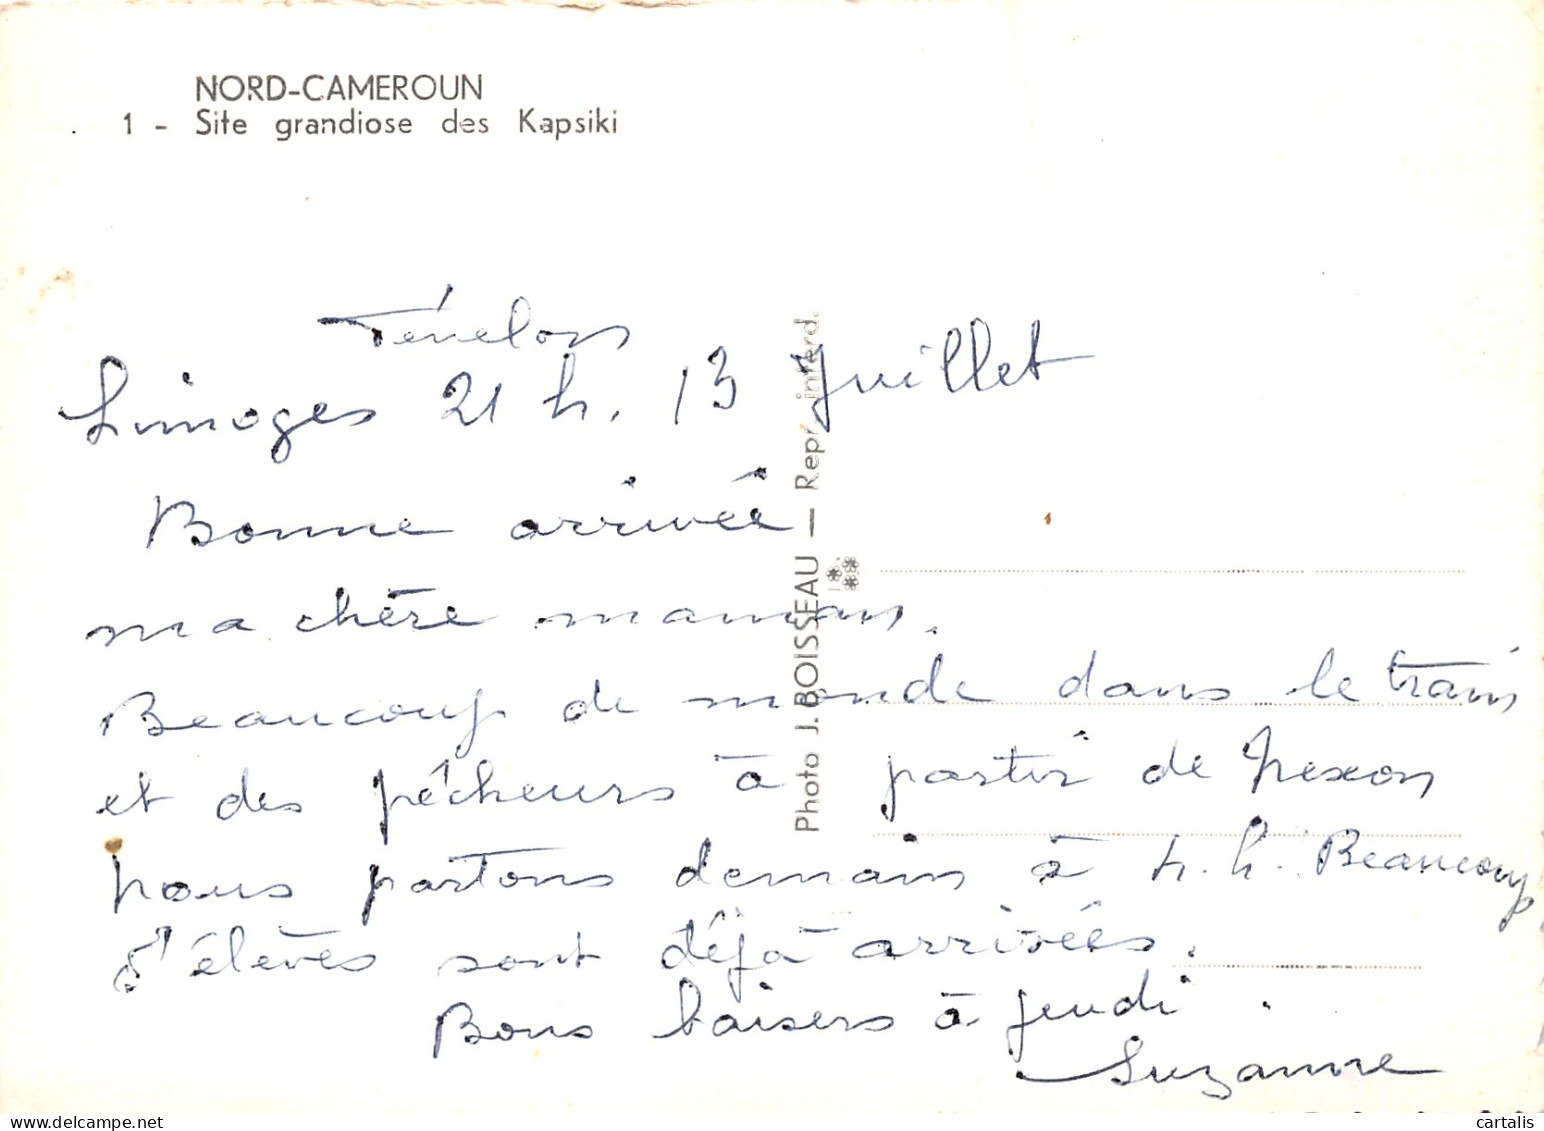 NORD-CAMEROUN
1 - Site grandiose des Kapsiki
Photo J. BOISSEAU — Repr. interd.
Limoges 21 h. 13 Juillet
Bonne arrivée
ma chère maman.
Beaucoup de monde dans le train
et des pêcheurs à partir de Nexon
nous partons demain à h. Beaucoup
d'élèves sont déjà arrivées.
Bons baisers à jeudi.
Suzanne
cartalis